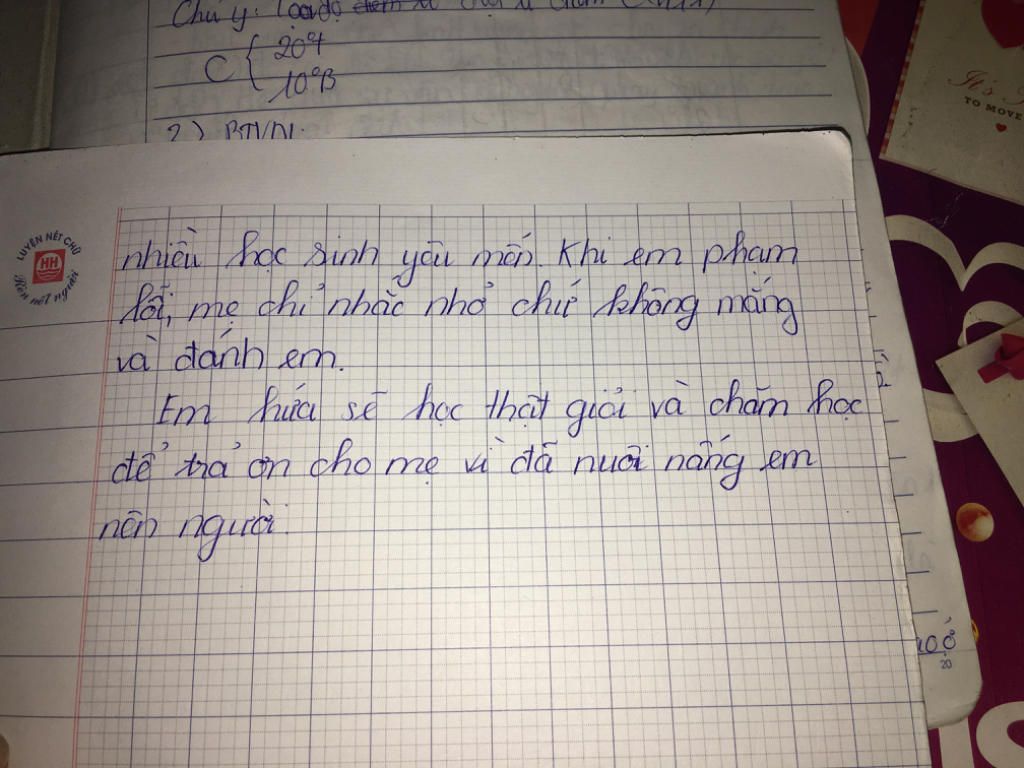 Chú ý: Toạ độ điểm
C { 20°T
10°B
2) BTVN:
LUYỆN NÉT CHỮ
HH
Rèn nết người
nhiều học sinh yêu mến. Khi em phạm
lỗi, mẹ chỉ nhắc nhở chứ không mắng
và đánh em.
Em hứa sẽ học thật giỏi và chăm học
để trả ơn cho mẹ vì đã nuôi nấng em
nên người.
It's
TO MOVE
20